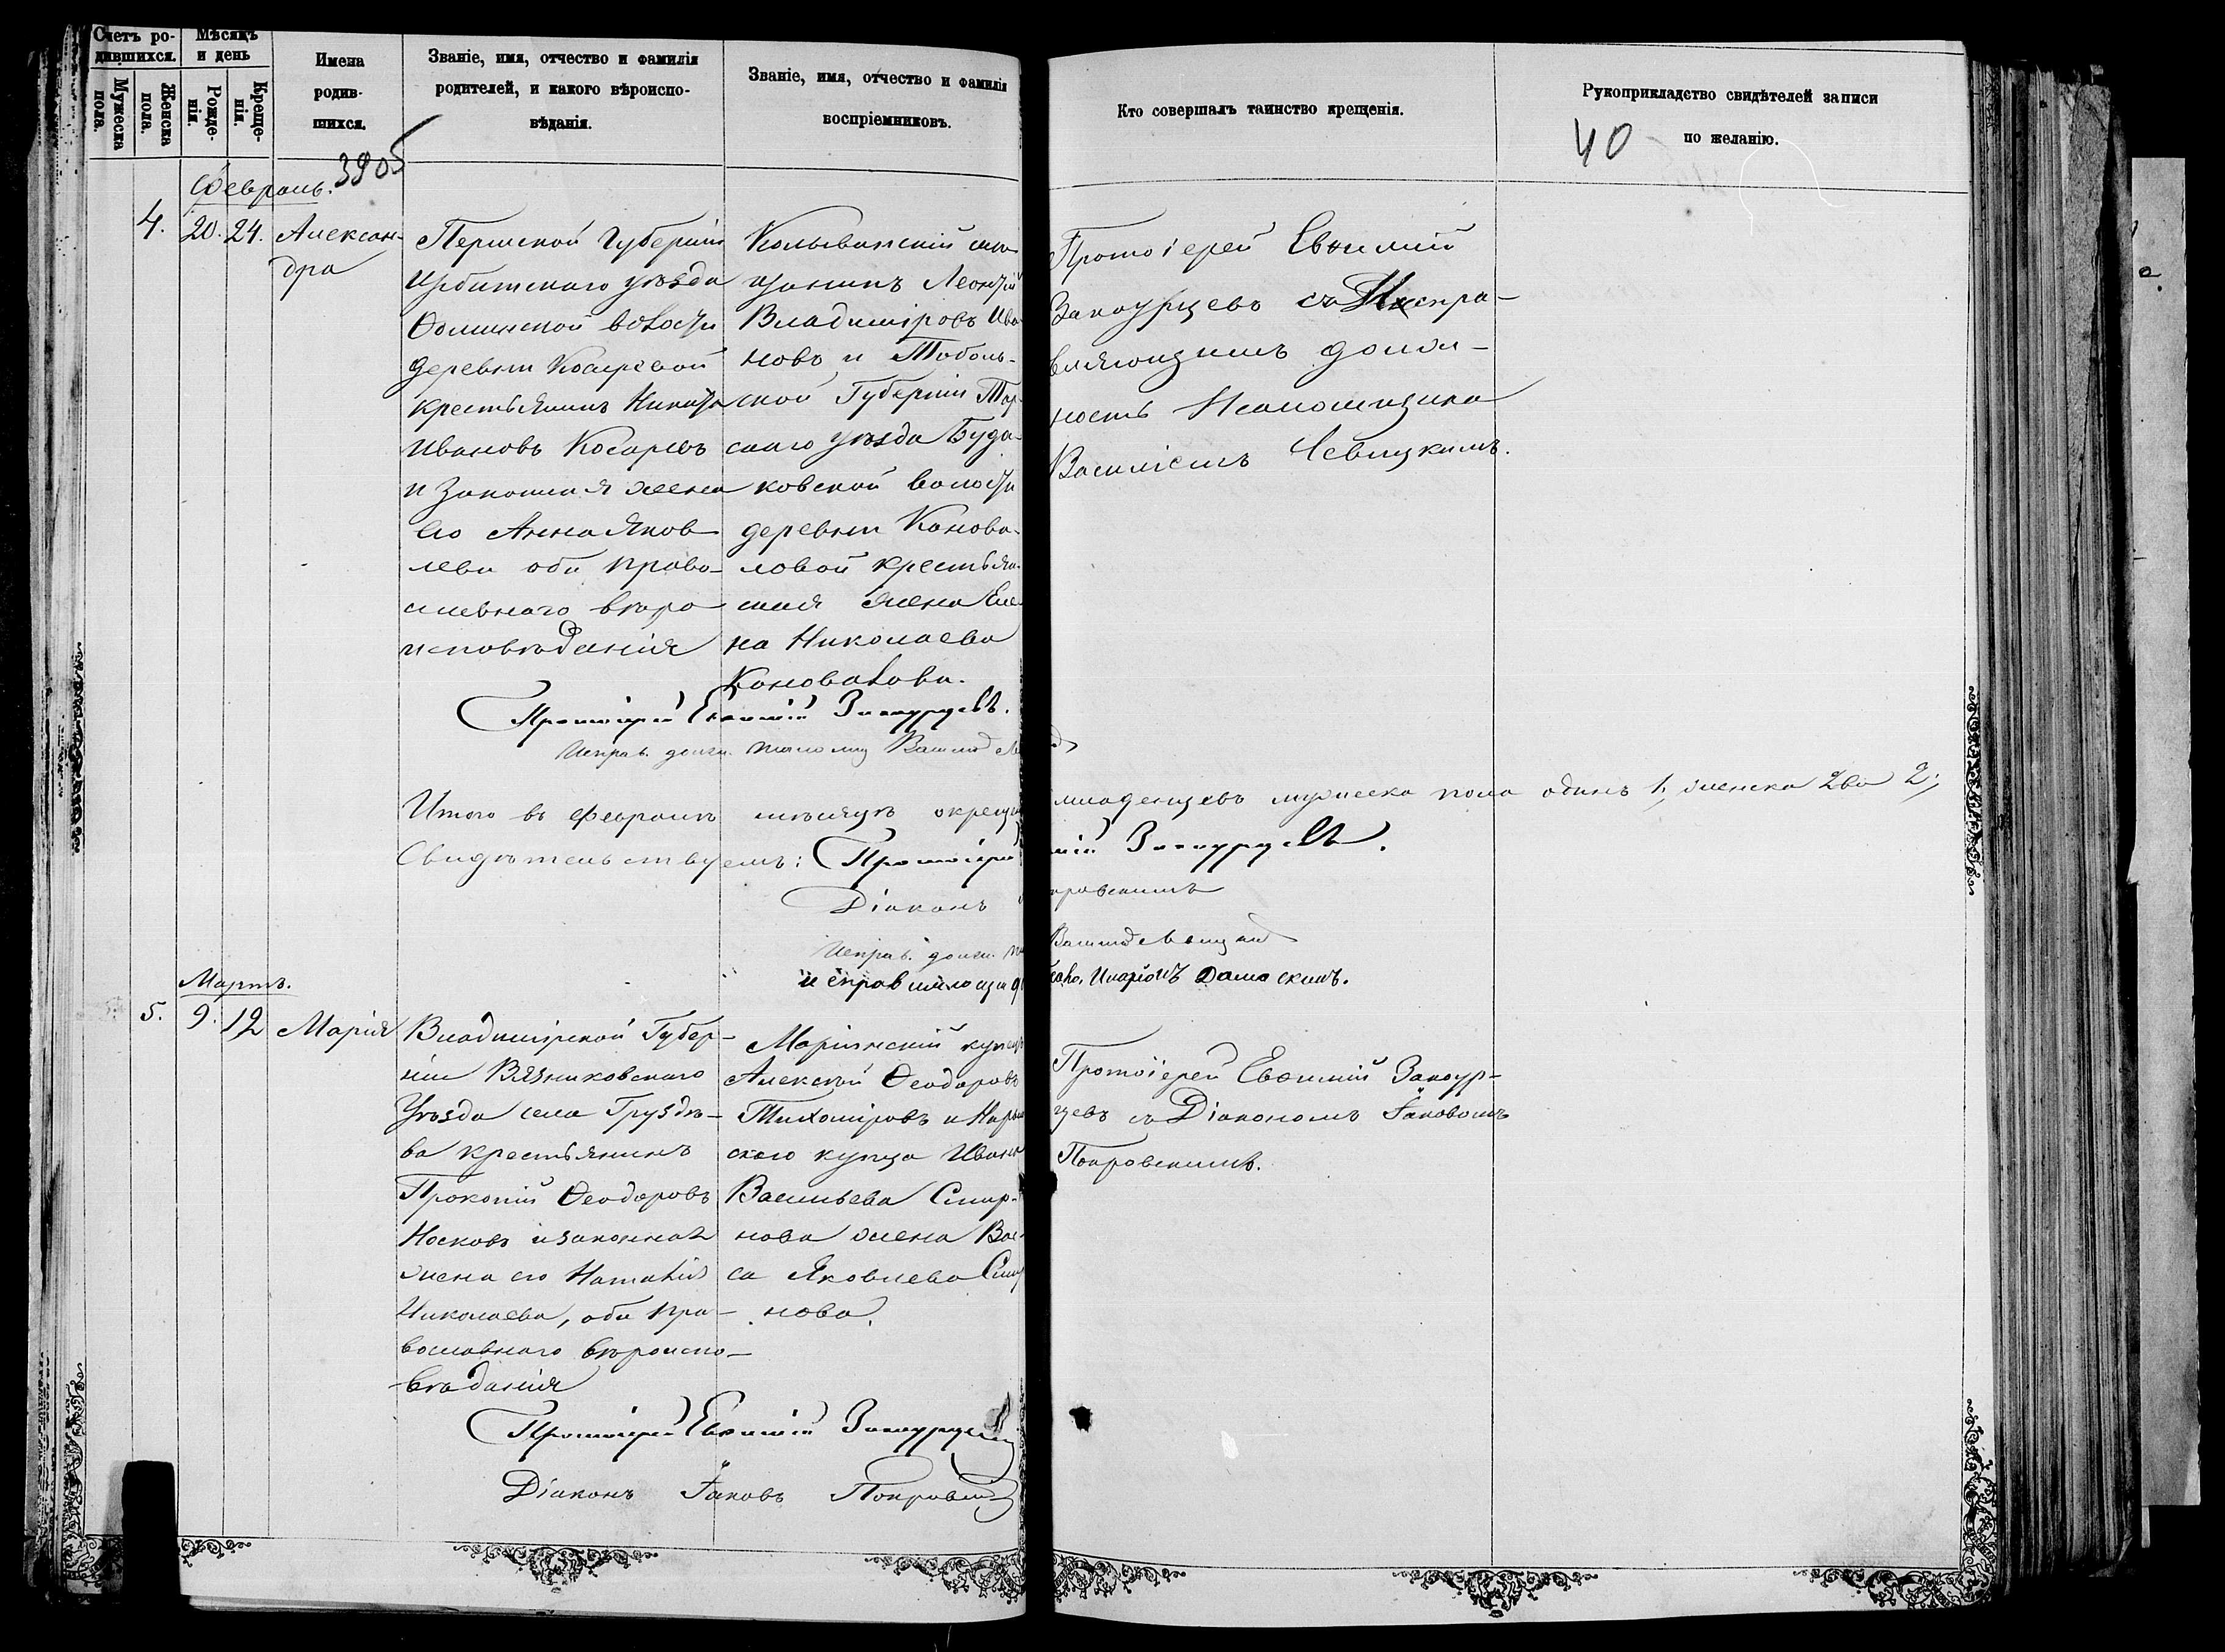 Счетъ ро-
дившихся.
Мужеска пола.
Женска пола.
Мѣсяцъ
и день
Рожде-
нія.
Креще-
нія.
Имена
родив-
шихся.
Званіе, имя, отчество и фамилія
родителей, и какого вѣроиспо-
вѣданія.
Званіе, имя, отчество и фамилія
воспріемниковъ.
Кто совершалъ таинство крещенія.
Рукоприкладство свидѣтелей записи
по желанію.
40
3905
Февраль.
4. 20. 24. Алексан-
дра
Пермской Губерніи
Ирбитскаго уѣзда
Ѳоминской волости
деревни Косаревой
крестьянинъ Никита
Ивановъ Косаревъ
и законная жена
его Анна Яков
лева оба право-
славнаго вѣро
исповѣданія
Колыванскій мѣ
щанинъ Леонтій
Владиміровъ Ива
новъ и Тоболь-
ской Губерніи Тар
скаго уѣзда Буда-
ковской волости
деревни Конова-
ловой крестьян
ская жена Еле
на Николаева
Коновалова.
Протоіерей Евѳимій
Закоурцевъ съ Испра-
вляющимъ долж-
ность Псаломщика
Василіемъ Левицкимъ.
Протоіерей Евѳимій Закоурцевъ.
Исправ. долж. псаломщ. Василій
Итого въ Февралѣ мѣсяцѣ окрещ младенцевъ мужеска пола одинъ 1, женска два 2;
Свидѣтельствуемъ: Протоіерей мій Закоурцевъ.
Діаконъ кровскимъ
Исправ. долж. Василій Левицкій
исправляющій Иларіонъ Дамаскинъ.
Мартъ.
5. 9. 12 Марія
Владимірской Губер-
ніи Вязниковскаго
Уѣзда села Груздѣ-
ва крестьянинъ
Прокопій Ѳеодоровъ
Носковъ и законная
жена его Наталія
Николаева, оба пра-
вославнаго вѣроиспо-
вѣданія
Маріинскій купецъ
Алексѣй Ѳеодоровъ
Тихоміровъ и Нарым
скаго купца Ивана
Васильева Смир-
нова жена Вас-
са Яковлева Смир
нова.
Протоіерей Евѳимій Закоур-
цевъ съ Діакономъ Іаковомъ
Покровскимъ.
Протоіерей Евѳимій Закоурцевъ
Діаконъ Іаковъ Покровскій